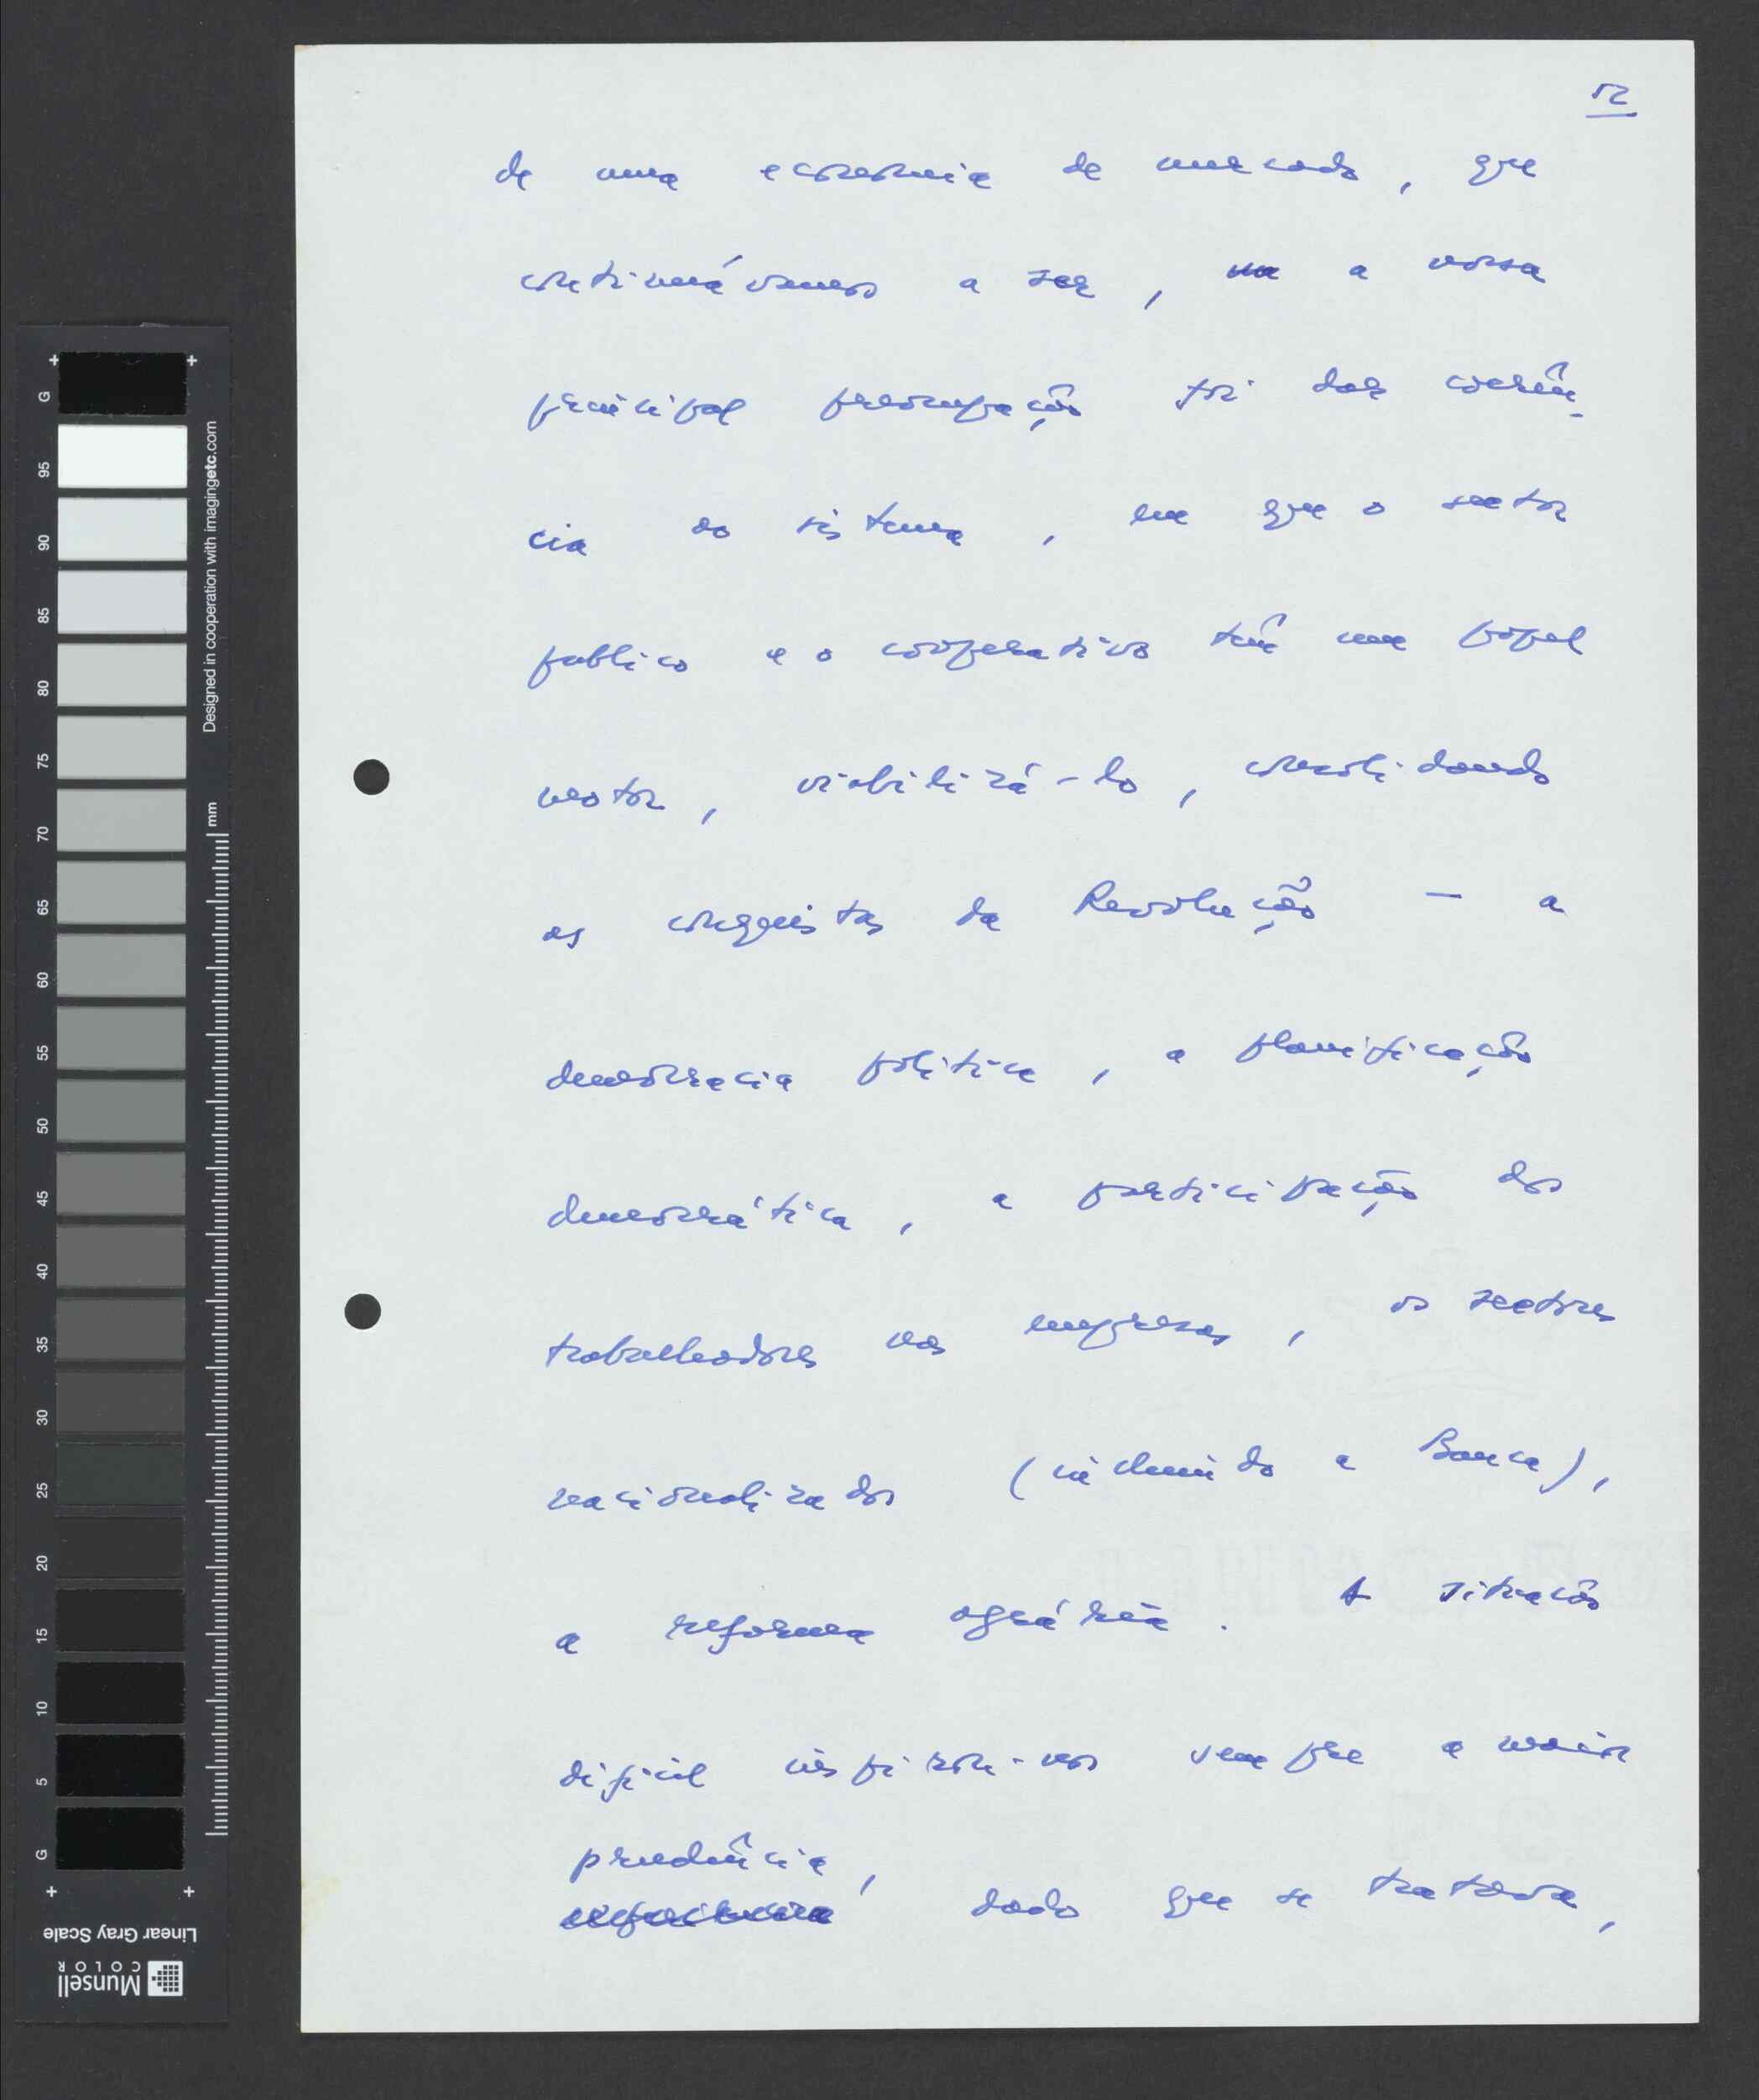 12
de uma economia de mercado, que
continuávamos a ser, a nossa
principal preocupação foi dar coerên-
cia ao sistema, em que o sector
publico e o cooperativo têm um papel
motor, viabilizá-lo, consolidando
as conquistas da Revolução — a
democracia politica, a planificação
democrática, a participação dos
trabalhadores nas empresas, os sectores
nacionalizados (incluindo a Banca),
a reforma agrária. A situação
dificil inspirou-nos sempre a maior
prudência,
dado que se tratava,
G
95
90
85
80
75
70
65
60
55
50
45
40
35
30
25
20
15
10
5
G
Designed in cooperation with imagingetc.com
mm
Linear Gray Scale
Munsell
COLOR